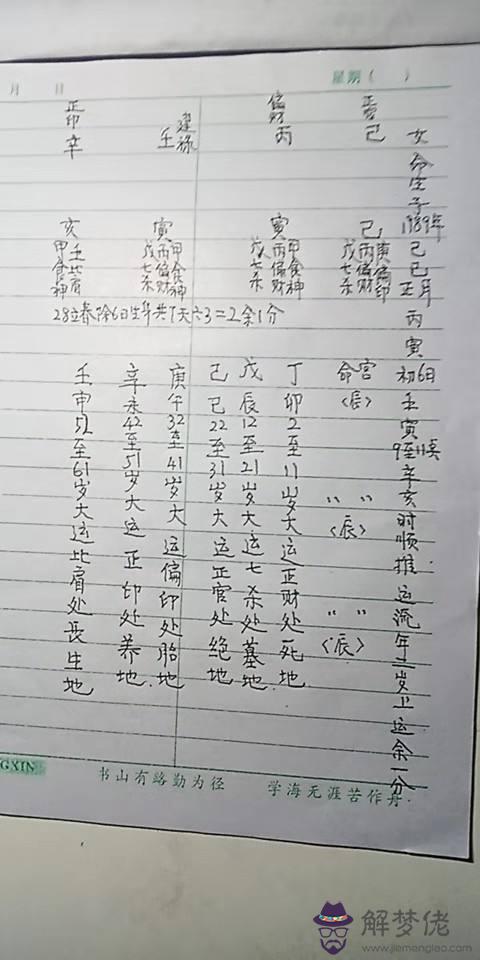 月 日
星期（ ）
女命生于1989年己巳正月丙寅初6日壬寅9至11支辛亥时顺推运流年二岁上运余一分
己
偏财
丙
建禄
壬
正印
辛
己
庚偏印
丙偏财
戊七杀
寅
甲食神
丙偏财
戊七杀
寅
甲食神
丙偏财
戊七杀
亥
壬比肩
甲食神
28立春除6日生年共7天六3=2余1分
命宫〈辰〉
〃 〃〈辰〉
〃 〃〈辰〉
丁卯2至11岁大运正财处死地
戊辰12至21岁大运七杀处墓地
己巳22至31岁大运正官处绝地
庚午32至41岁大运偏印处胎地
辛未42至51岁大运正印处养地
壬申52至61岁大运比肩处长生地
GXIN
书山有路勤为径 学海无涯苦作舟
解梦佬
www.jiemenglao.com